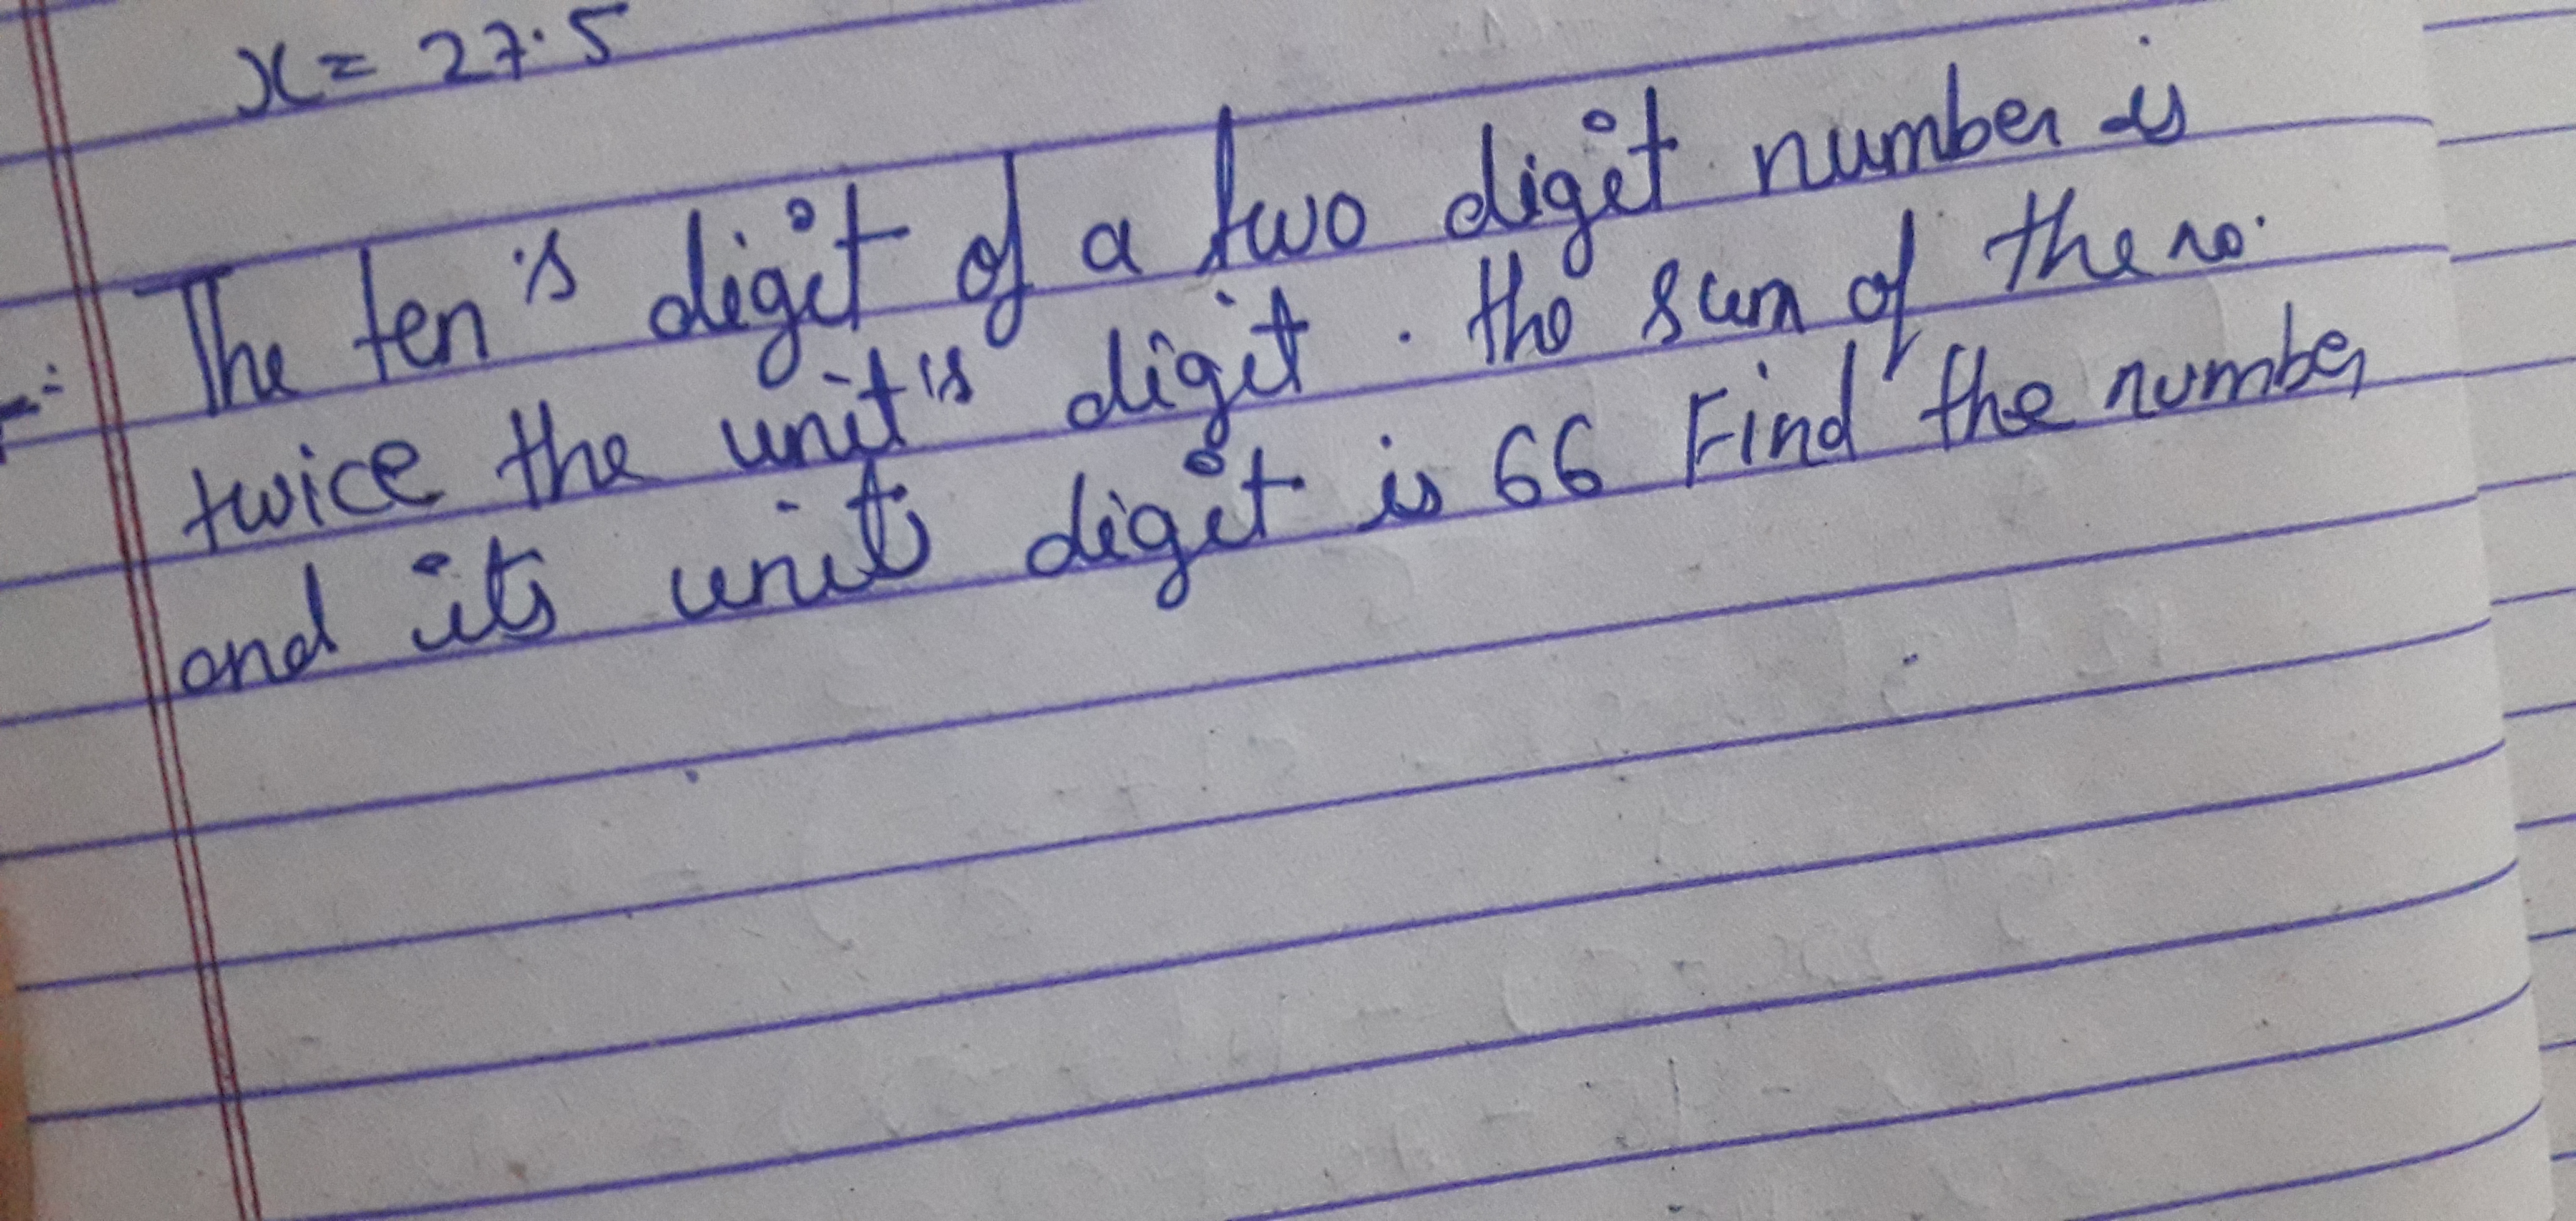 x = 27.5
The ten's digit of a two digit number is
twice the unit's digit. the sum of the no.
and its units digit is 66 Find the number